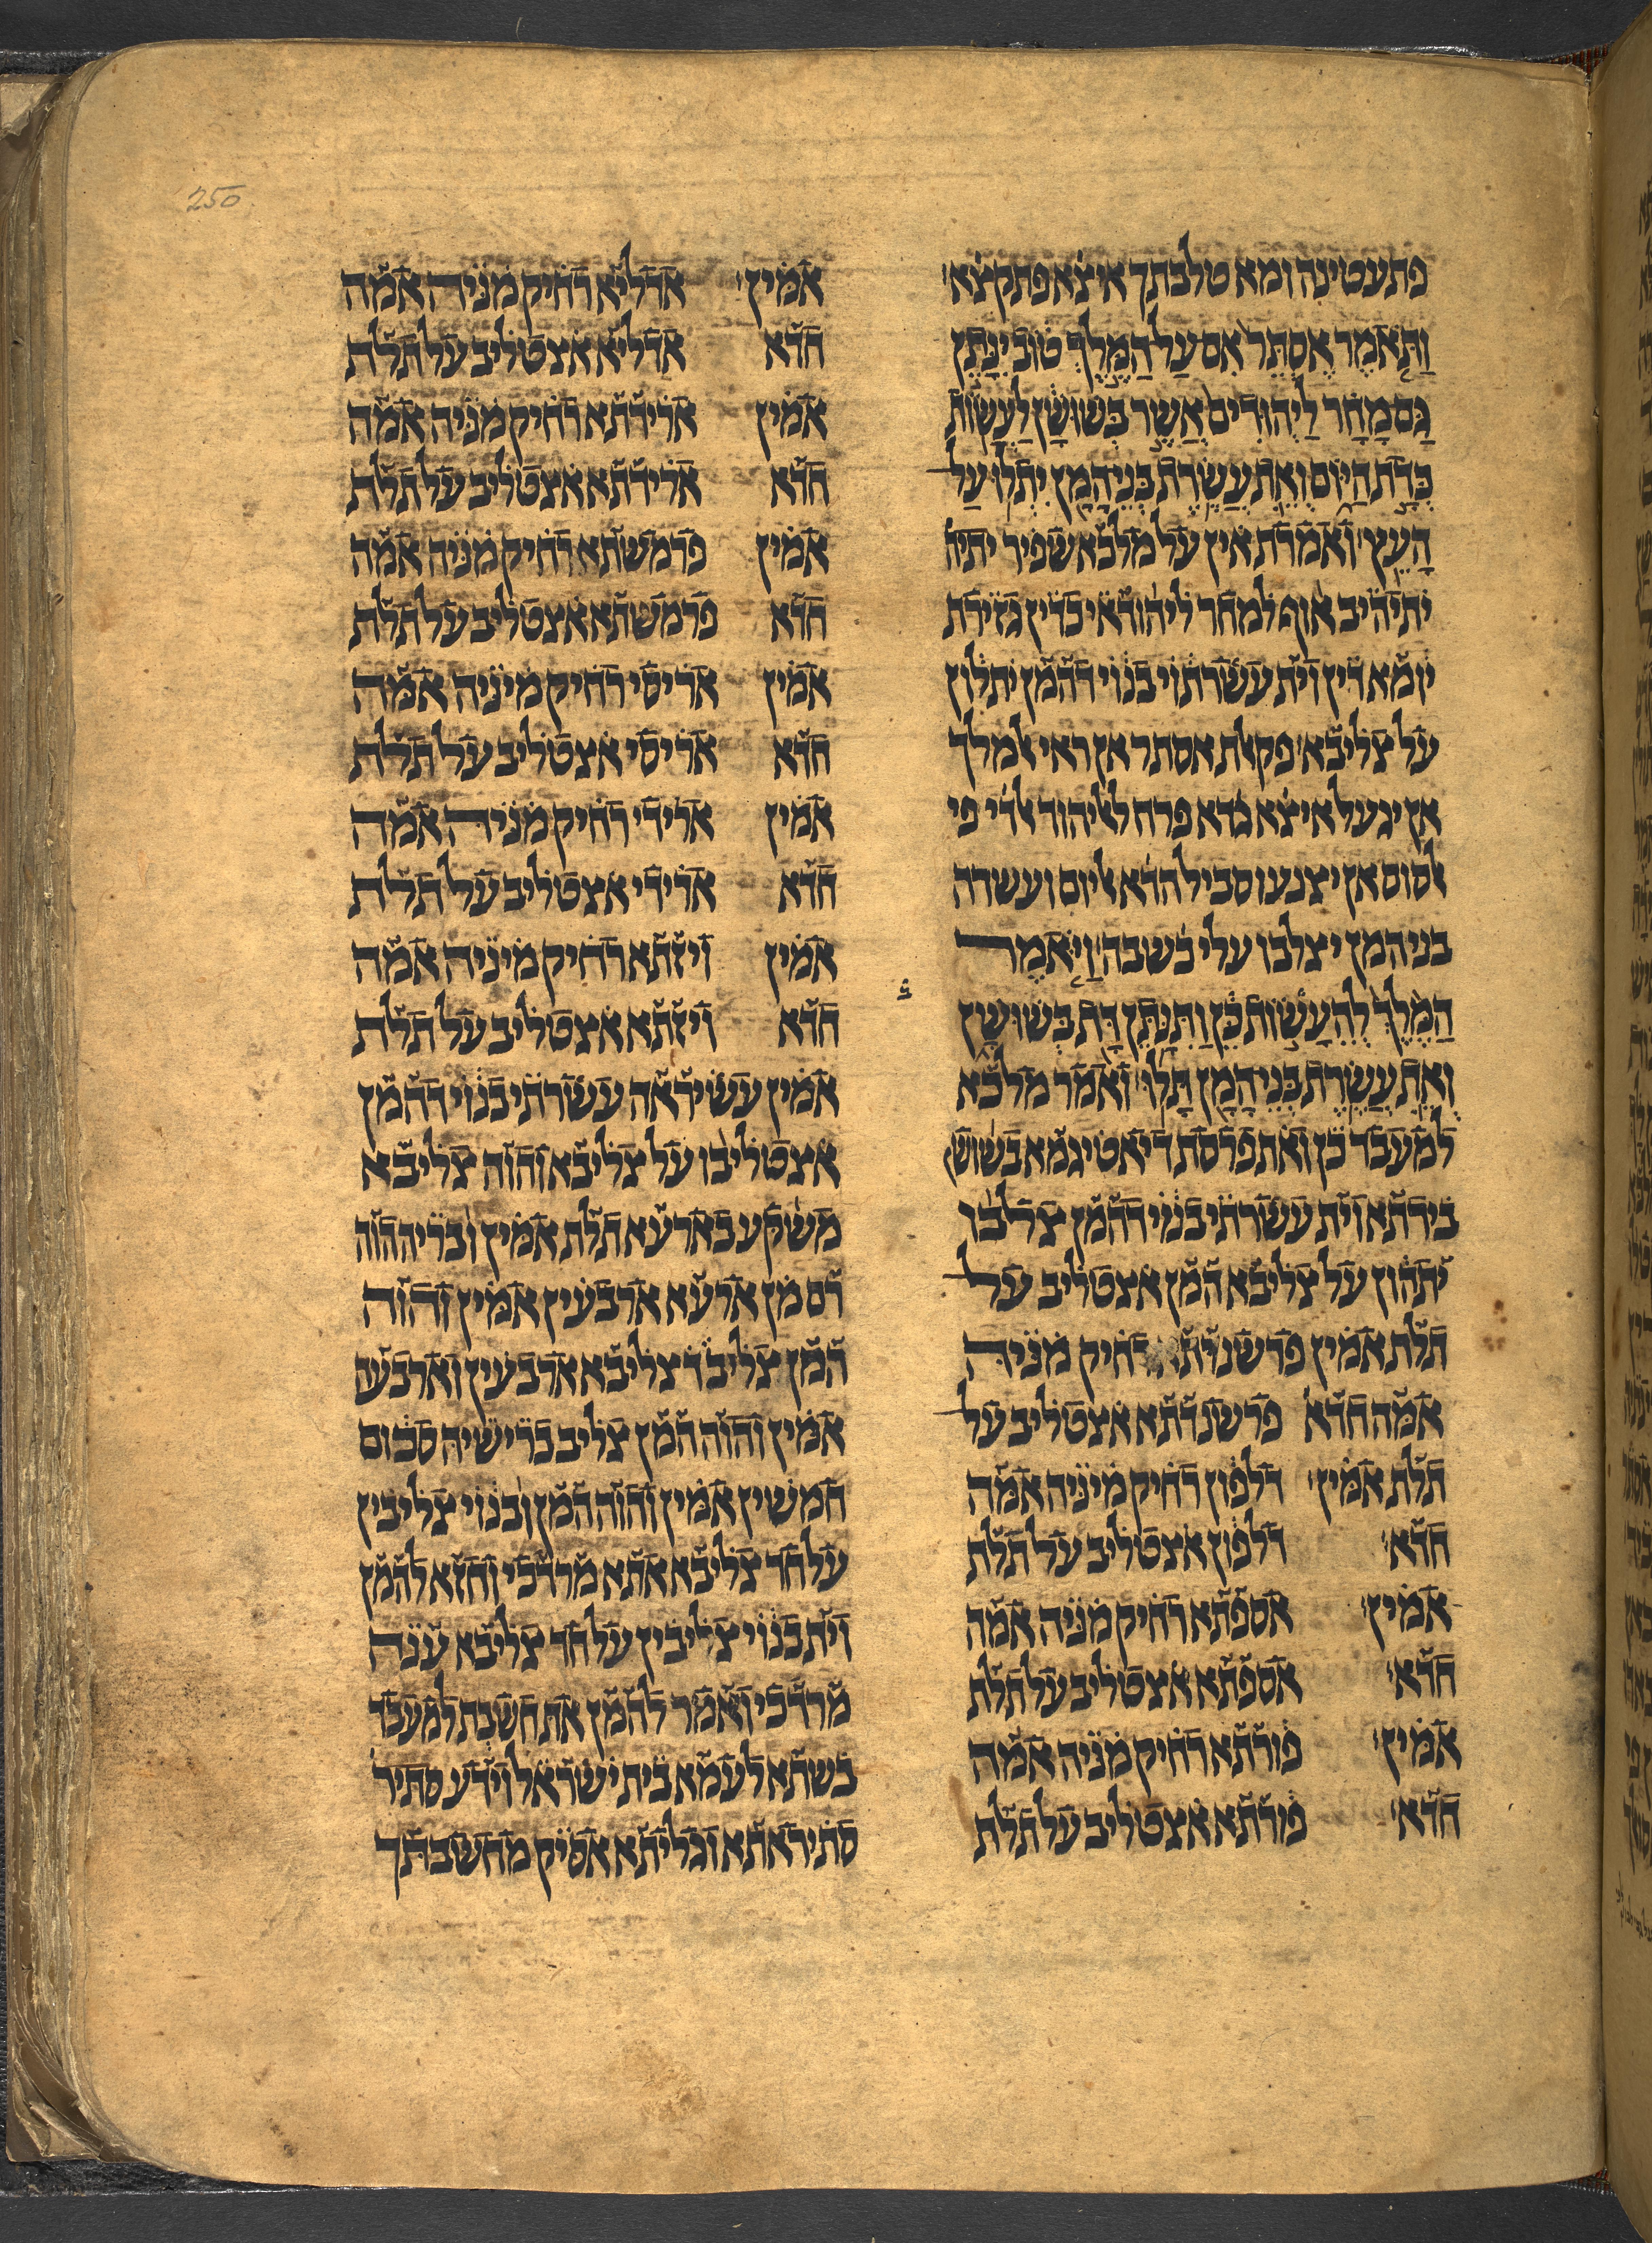 250
פתעטינה ומא טלבתך איצׄא פתקצׄא
וַתֹּאמֶר אֶסְתֵּר אִם עַל הַמֶּלֶךְ טוֹב יִנָּתֵן
גַּם מָחָר לַיְּהוּדִים אֲשֶׁר בְּשׁוּשָׁן לַעֲשׂוֹת
כְּדָת הַיּוֹם וְאֵת עֲשֶׂרֶת בְּנֵי הָמָן יִתְלוּ עַל
הָעֵץ ואמרת אין על מלכא שפיר יתיה
יתיהיב אוף למחר ליהודאי כדין גזירת
יומא דין וית עשרתוי בנוי דהמן יתלון
על צליבא פקאלת אסתר אן ראי אלמלך
אן יגעל איצׄא גדא פרח לאליהוד אלדׄי פי
אלסוס אן יצנעו סביל הדׄא אליום ועשרה
בני המן יצלבו עלי כׄשבה וַיֹּאמֶר
הַמֶּלֶךְ לְהֵעָשׂוֹת כֵּן וַתִּנָּתֵן דָּת בְּשׁוּשָׁן
וְאֵת עֲשֶׂרֶת בְּנֵי הָמָן תָּלוּ ואמר מלכא
למעבד כן ואתפרסת דיאטיגמא בשושן
בירתא וית עשרתי בנוי דהמן צלבו
יתהון על צליבא המן אצטליב על
תלת אמין פרשנדתא רחיק מניה
אמה חדא פרשנדתא אצטליב על
תלת אמין דלפון רחיק מיניה אמה
חדא דלפון אצטליב על תלת
אמין אספתא רחיק מניה אמה
חדא אספתא אצטליב על תלת
אמין פורתא רחיק מניה אמה
חדא פורתא אצטליב על תלת
אמין אדליא רחיק מניה אמה
חדא אדליא אצטליב על תלת
אמין ארידתא רחיק מניה אמה
חדא ארידתא אצטליב על תלת
אמין פרמשתא רחיק מניה אמה
חדא פרמשתא אצטליב על תלת
אמין אריסי רחיק מיניה אמה
חדא אריסי אצטליב על תלת
אמין ארידי רחיק מניה אמה
חדא ארידי אצטליב על תלת
אמין ויזתא רחיק מיניה אמה
חדא ויזתא אצטליב על תלת
אמין עשיראה עשרתי בנוי דהמן
אצטליבו על צליבא והוה צליבא
משוקע בארעא תלת אמין ובריה הוה
רם מן ארעא ארבעין אמין והוה
המן צליב דצליבא ארבעין וארבעה
אמין והוה המן צליב ברישיה סכום
חמשין אמין והוה המן ובנוי צליבין
על חד צליבא אתא מרדכי וחזא להמן
וית בנוי צליבין על חד צליבא ענה
מרדכי ואמר להמן את חשבת למעבד
בשתא לעמא בית ישראל וידע סתיר
סתיראתא וגליתא אסיק מחשבתך